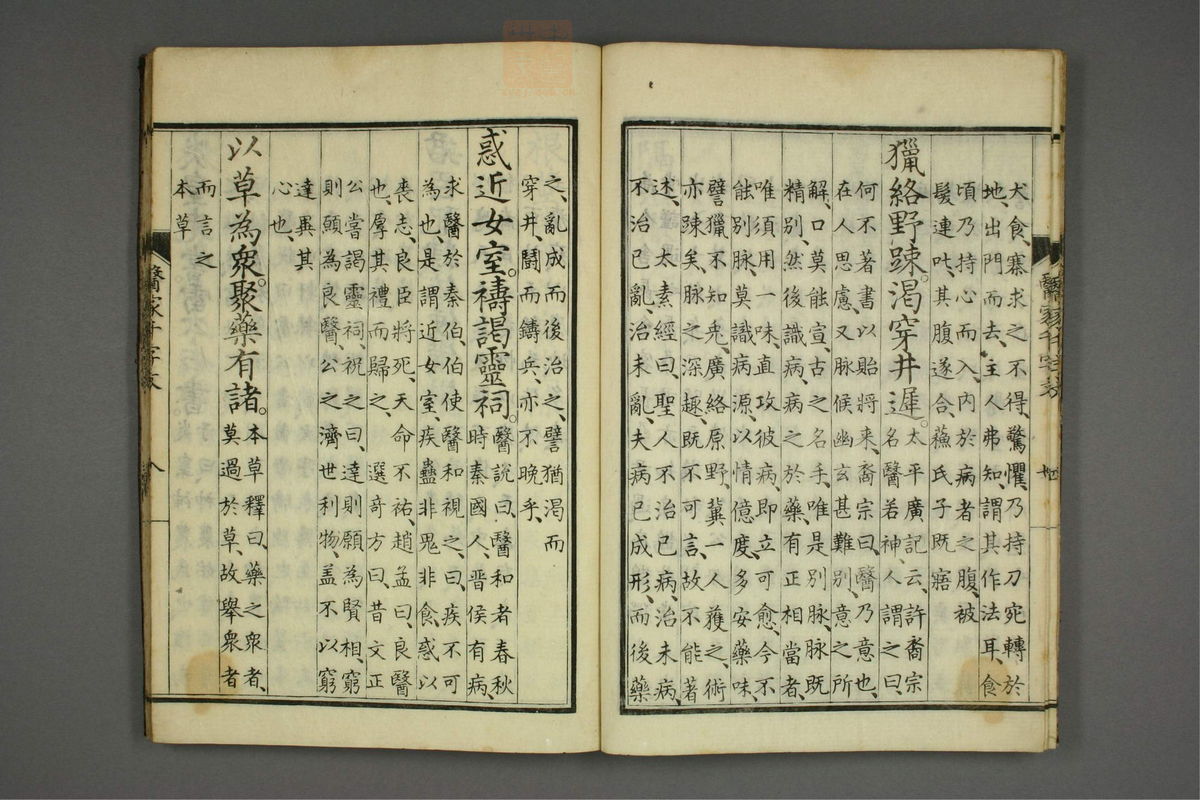 犬食、寨求之不得、驚懼、乃持刀宛轉於
地、出門而去、主人弗知、謂其作法耳、食
頃乃持心而入、内於病者之腹、被
髮連吐、其腹遂合、蘓氏子既寤
獵絡野踈。渇穿井遲。太平廣記云、許裔宗
名醫若神、人謂之曰
何不著書以貽將來、裔宗曰、醫乃意也、
在人思慮、又脉候幽玄甚難别、意之所
解、口莫能宣、古之名手、唯是别脉、脉既
精别、然後識病、病之於藥、有正相當者、
唯須用一味、直攻彼病、即立可愈、今不
能别脉、莫識病源、以情億度、多安藥味、
譬獵不知兎、廣絡原野、冀一人獲之、術
亦踈矣、脉之深趣、既不可言、故不能著
述、太素經曰、聖人不治已病、治未病、
不治已亂、治未亂、夫病已成形、而後藥
醫家千字文
之、亂成而後治之、譬猶渇而
穿井、鬪而鑄兵、亦不晩乎、
惑近女室。禱謁靈祠。醫説曰、醫和者春秋
時秦國人、晋侯有病、
求醫於秦伯、伯使醫和視之、曰、疾不可
為也、是謂近女室、疾蠱非鬼非食、惑以
喪志、良臣將死、天命不祐、趙孟曰、良醫
也、厚其禮而歸之、選竒方曰、昔文正
公嘗謁靈祠、祝之曰、達則願為賢相、窮
則願為良醫、公之濟世利物、盖不以窮
達異其
心也、
以草為衆。聚藥有諸。本草釋曰、藥之衆者、
莫過於草、故舉衆者
而言之
本草
醫家千字文
八